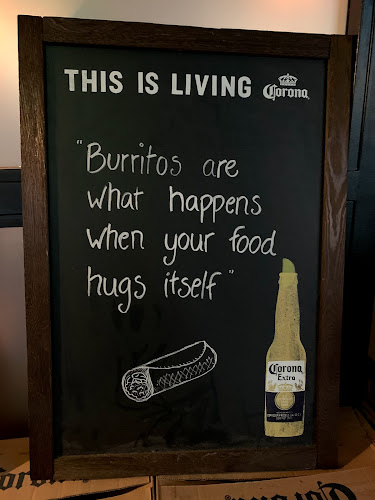 THIS IS LIVING Corona
"Burritos are
what happens
when your food
hugs itself"
Corona
Extra
Corona